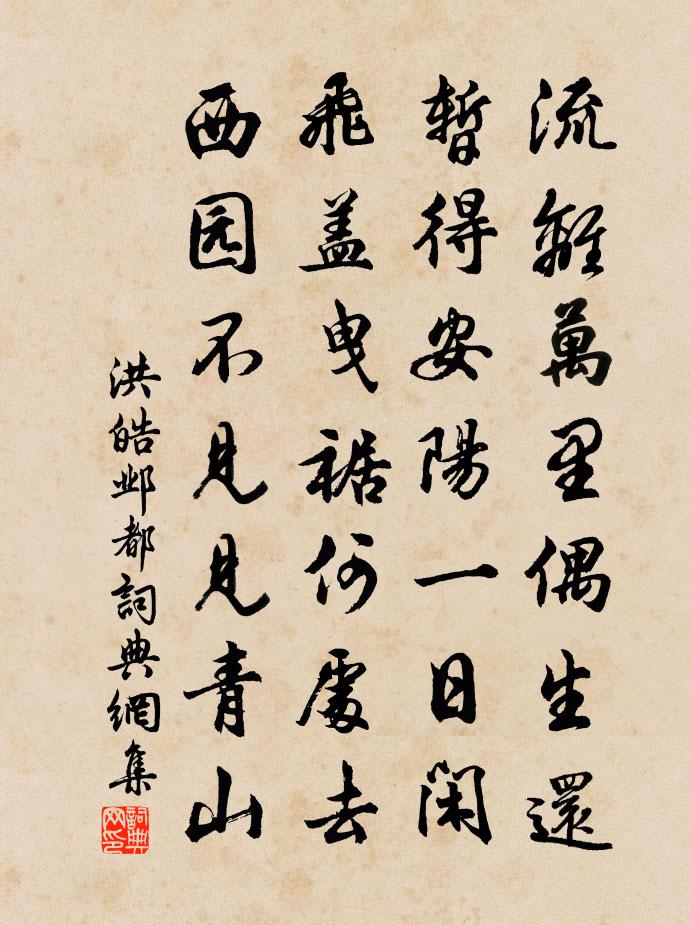 流離萬里偶生還
暫得安陽一日閑
飛盖曳裾何處去
西园不見見青山
洪皓邺都詞典網集
詞典
网印